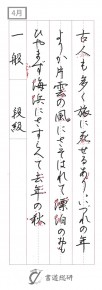 4月
古人も多く旅に死せるあり。いづれの年
よりか片雲の風にさそはれて漂泊の思
ひやまず海浜にさすらへて去年の秋
一般　段級
書道総研